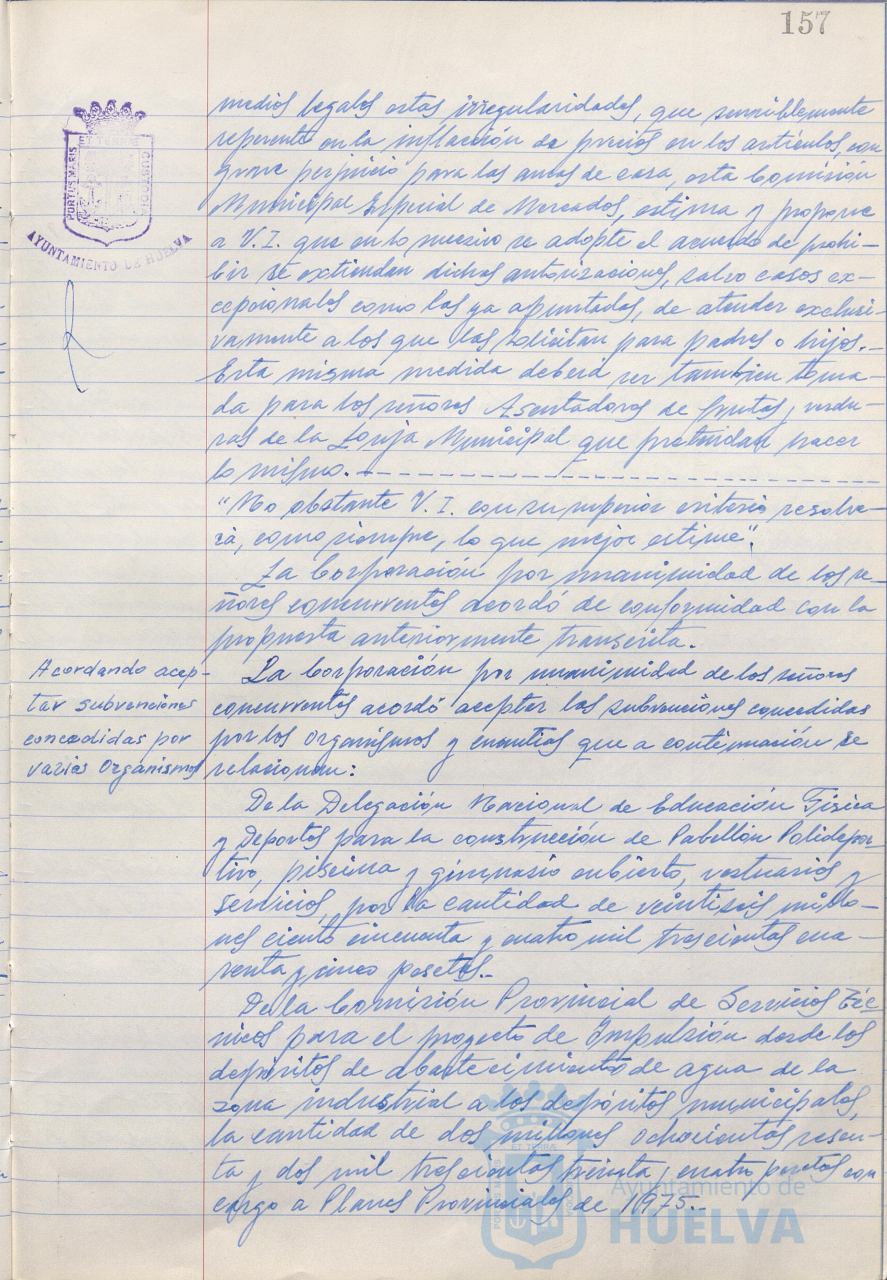 157
PORTUS MARIS
ET TERRÆ
CUSTODIA
AYUNTAMIENTO DE HUELVA
medios legales estas irregularidades, que sensiblemente
repercute en la inflacción de precios en los artículos, con
grave perjuicio para las amas de casa, esta Comisión
Municipal Especial de Mercados, estima y propone
a V.I. que en lo sucesivo se adopte el acuerdo de prohi-
bir se extiendan dichas autorizaciones, salvo casos ex-
cepcionales como los ya apuntados, de atender exclusi-
vamente a los que las solicitan para padres o hijos.-
Esta misma medida deberá ser tambien toma-
da para los señores Asentadores de frutas y verdu-
ras de la Lonja Municipal que pretendan hacer
lo mismo.-
"No obstante V.I. con su superior criterio resolve-
rá, como siempre, lo que mejor estime".
La Corporación por unanimidad de los se-
ñores concurrentes acordó de conformidad con la
propuesta anteriormente transcrita.
Acordando acep-
tar subvenciones
concedidas por
varios Organismos
La Corporación por unanimidad de los señores
concurrentes acordó aceptar las subvenciones concedidas
por los Organismos y cuantías que a continuación se
relacionan:
De la Delegación Nacional de Educación Fisica
y Deportes para la construcción de Pabellón Polidepor-
tivo, piscina y gimnasio cubierto, vestuarios y
servicios, por la cantidad de veintiseis millo-
nes ciento cincuenta y cuatro mil trescientas cua-
renta y cinco pesetas.-
De la Comisión Provincial de Servicios Téc-
nicos para el proyecto de Impulsión desde los
depósitos de abastecimiento de agua de la
zona industrial a los depósitos municipales,
la cantidad de dos millones ochocientas sesen-
ta y dos mil trescientas treinta y cuatro pesetas con
cargo a Planes Provinciales de 1975.-
Ayuntamiento de
HUELVA